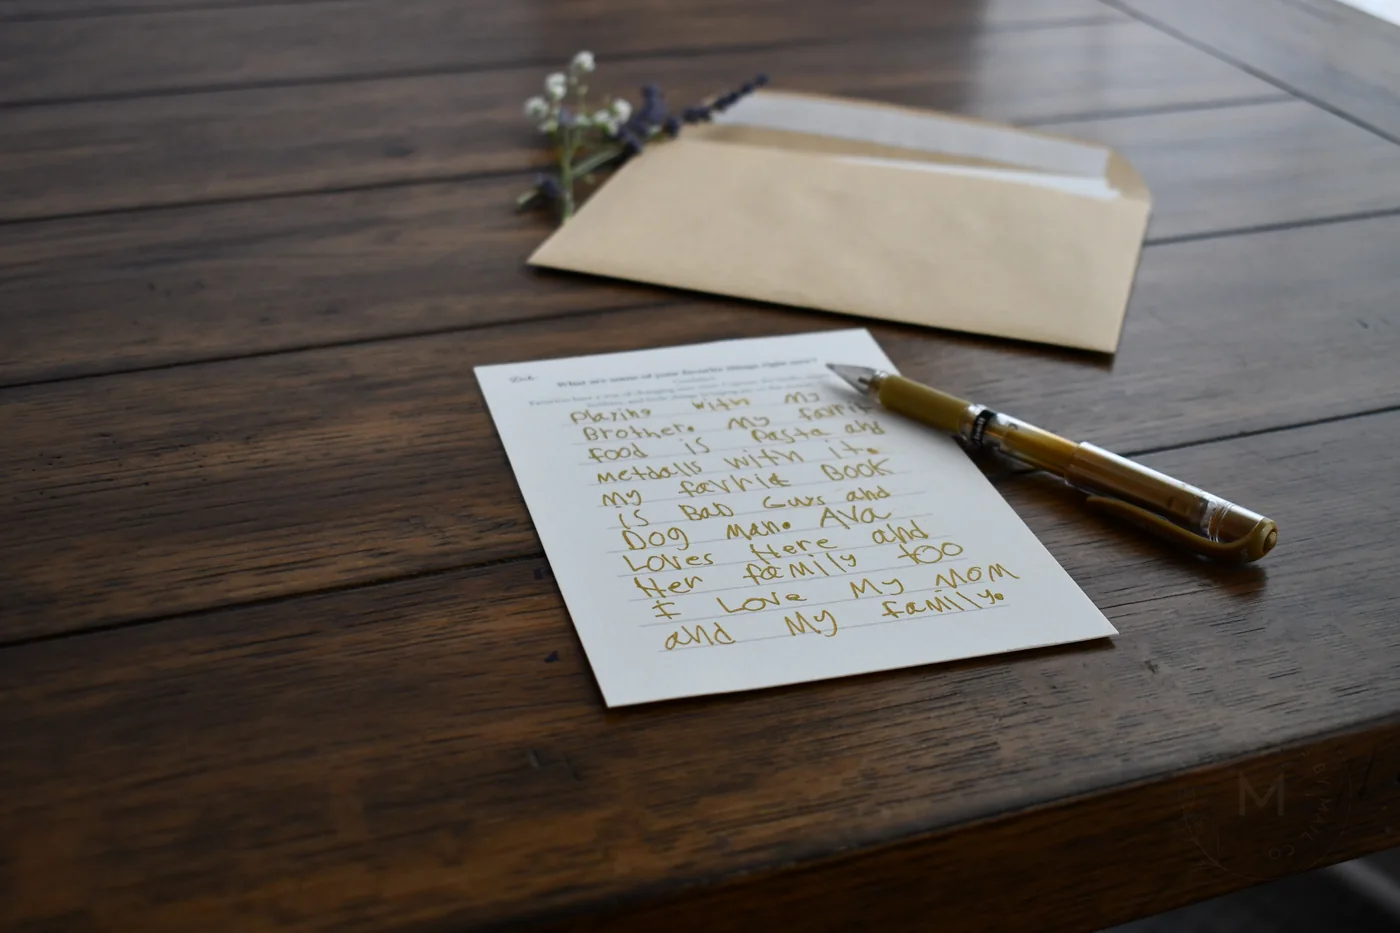 What are some of your favorite things right now?
Playing with My
Brother. My favrit
food is Pasta and
metdalls with it.
My favrit Book
is Bad Guys and
Dog Man. Ava
Loves Here and
Her family too
I Love My Mom
and My family.
M